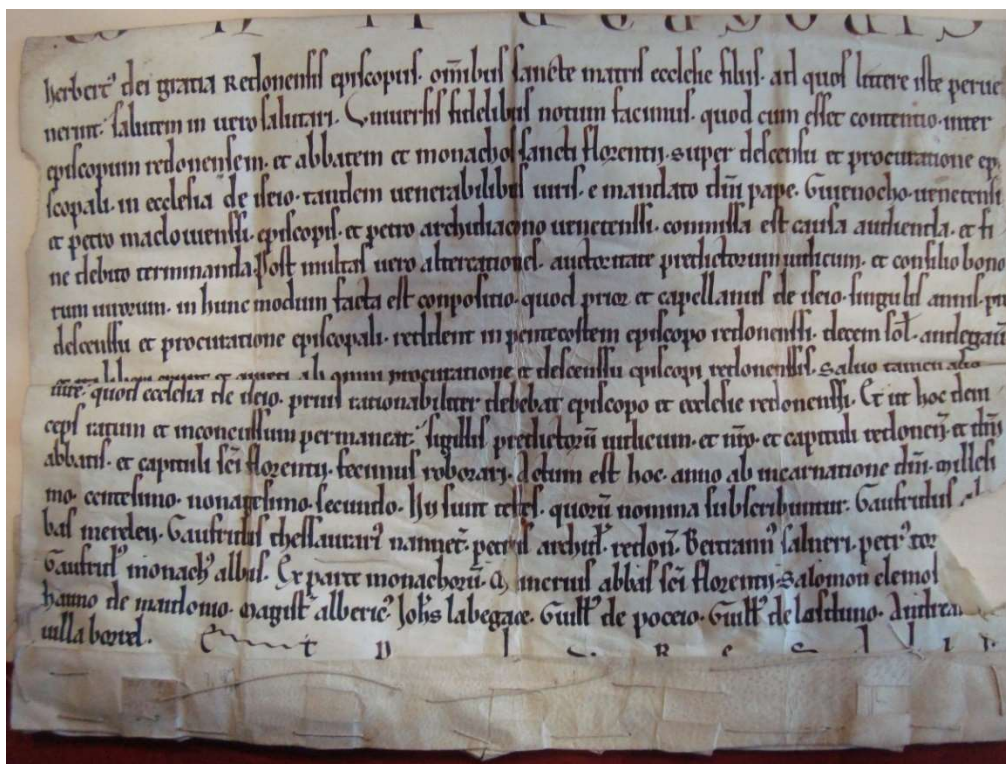 herbert᾽ dei gratia Redonensis episcopus. om̄ibus sancte matris ecclesie filiis. ad quos littere iste perue
nerint. salutem in uero salutari. Vniuersis fidelibus notum facimus. quod cum esset contentio inter
episcopum redonensem. et abbatem et monachos sancti florentij. super descensu et procuratione epi
scopali. in ecclesia de iseio. tandem uenerabilibus uiris. e mandato dn̄i pape. Guienocho. uenetensi
et petro maclouuensi. episcopis. et petro archidiacono uenetensi. commissa est causa audienda. et fi
ne debito terminanda. Post multas uero altercationes. auctoritate predictorum iudicum. et consilio bono
rum uirorum. in hunc modum facta est conpositio. quod prior et capellanus de iseio. singulis annis. pro
descensu et procuratione episcopali. reddent in pentecostem episcopo redonensi. decem sol̄. andegau
ab omni procuratione et descensu episcopi redonensis. Saluo tamen alio
iure. quod ecclesia de iseio. prius rationabiliter debebat episcopo et ecclesie redonensi. Et ut hoc dein
ceps ratum et inconcussum permaneat. sigillis predictorū iudicum. et nr̄o. et capituli redonen̄. et dn̄i
abbatis. et capituli sc̄i florentij. fecimus roborari. Actum est hoc. anno ab incarnatione dn̄i. millesi
mo. centesimo. nonagesimo. secundo. Hij sunt testes. quorū nomina subscribuntur. Gaufridus ab
bas meredeij. Gaufridus thessaurari᾽ nannet̄. petrus archid᾽. redon̄. Bertrann᾽ salneri. petr᾽ tor
Gaufrid᾽ monach᾽ albus. Ex parte monachorū. Mainerius abbas sc̄i florentij. Salomon elemos
hamo de mandonio. Magist᾽ alberic᾽. Joh̄s labegace. Guill᾽ de poceio. Guill᾽ de lastuno. Andreas
uilla bortel.